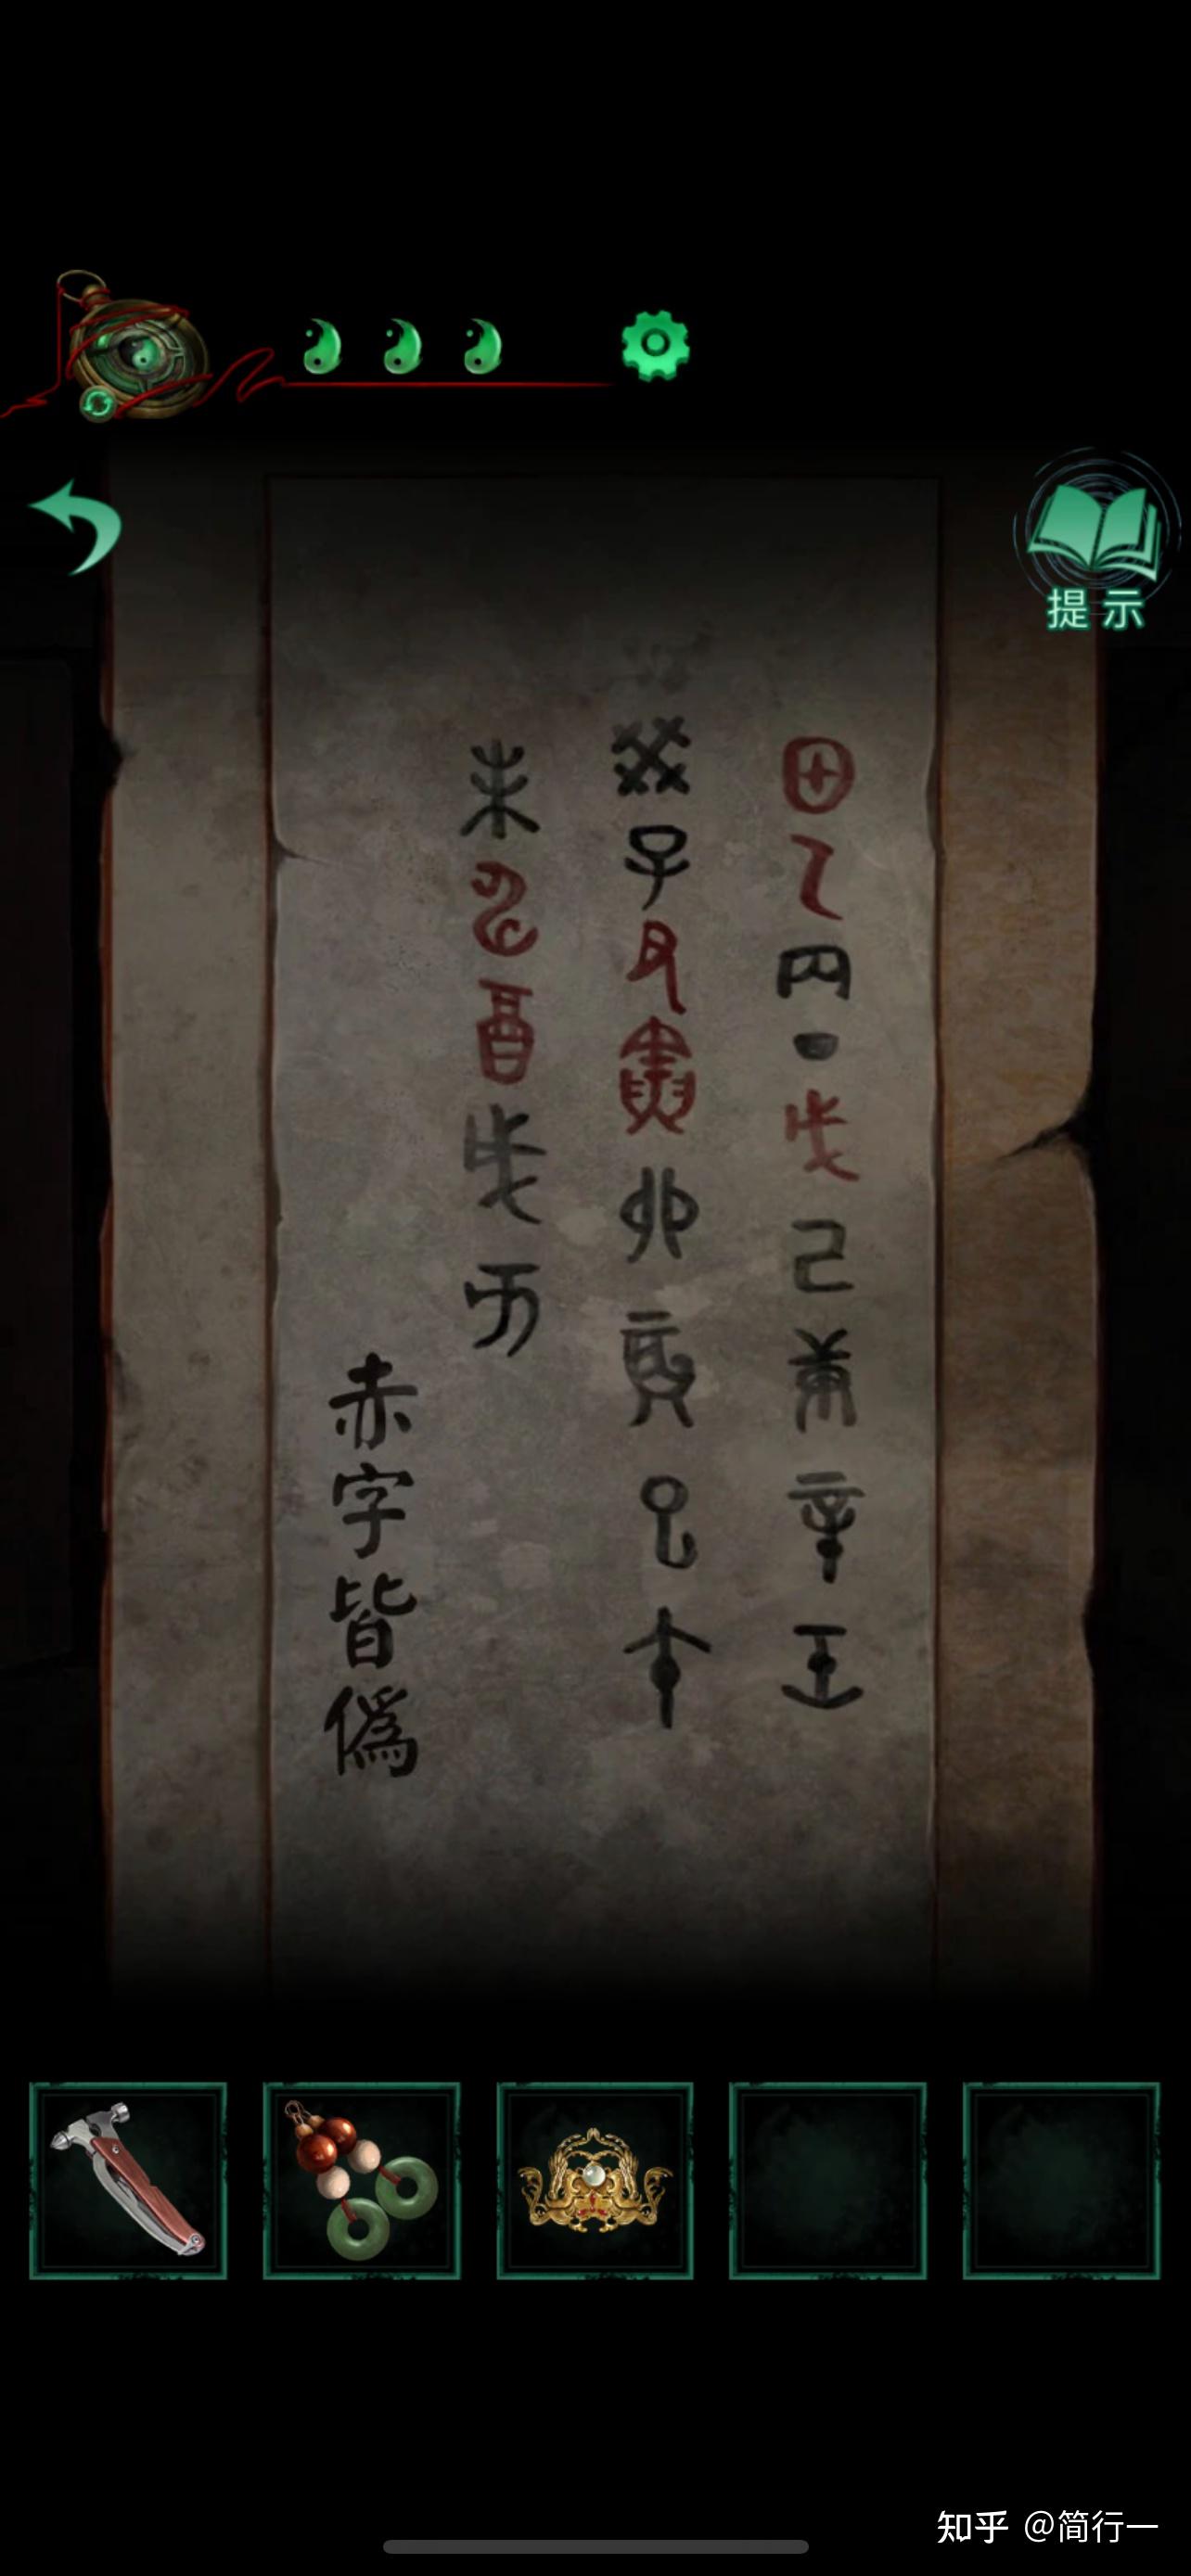 提示
甲乙丙丁戊己庚辛壬
癸子丑寅卯辰巳午
未申酉戌亥
赤字皆僞
知乎 @简行一